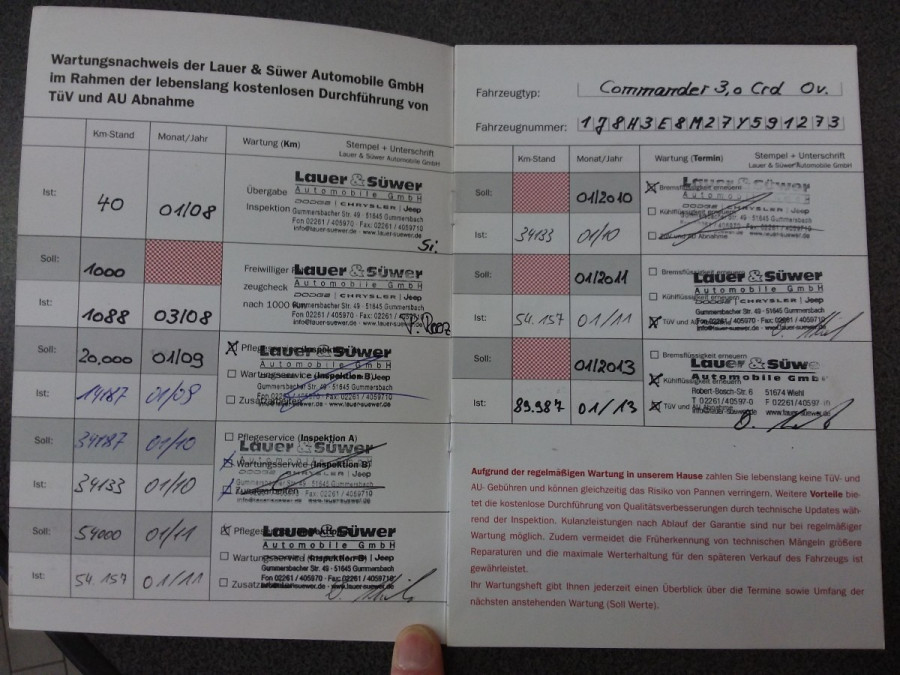 Wartungsnachweis der Lauer & Süwer Automobile GmbH
im Rahmen der lebenslang kostenlosen Durchführung von
TüV und AU Abnahme
Km-Stand Monat/Jahr Wartung (Km) Stempel + Unterschrift
Lauer & Süwer Automobile GmbH
Ist: 40 01/08 Übergabe
Inspektion
Lauer & Süwer
Automobile GmbH
DODGE | CHRYSLER | Jeep
Gummersbacher Str. 49 · 51645 Gummersbach
Fon 02261 / 405970 · Fax: 02261 / 4059710
info@lauer-suewer.de · www.lauer-suewer.de
Soll: 1000 Freiwilliger
zeugcheck
nach 1000 Km
Lauer & Süwer
Automobile GmbH
DODGE | CHRYSLER | Jeep
Gummersbacher Str. 49 · 51645 Gummersbach
Fon 02261 / 405970 · Fax: 02261 /
info@lauer-suewer.de · www.lauer-suewer.de
Ist: 1088 03/08
Soll: 20,000 01/09 Pflegeservice
Wartungsservice (Inspektion B)
Lauer & Süwer
Automobile GmbH
Gummersbacher Str. 49 · 51645 Gummersbach
Ist: 01/09
Soll: 34187 01/10 Pflegeservice (Inspektion A)
Wartungsservice (Inspektion B)
Zusatzarbeiten
Lauer & Süwer
Automobile GmbH
Ist: 34133 01/10
Soll: 54000 01/11
Wartungsservice
Lauer & Süwer
Automobile GmbH
Gummersbacher Str. 49 · 51645 Gummersbach
Fon 02261 / 405970 · Fax: 02261 / 4059710
info@lauer-suewer.de · www.lauer-suewer.de
Ist: 54.157 01/11
Fahrzeugtyp: Commander 3,0 Crd Ov.
Fahrzeugnummer: 1J8H3E8M27Y591273
Km-Stand Monat/Jahr Wartung (Termin) Stempel + Unterschrift
Lauer & Süwer Automobile GmbH
Soll: 01/2010 Bremsflüssigkeit erneuern
Kühlflüssigkeit erneuern
TüV und AU Abnahme
Lauer & Süwer
Automobile GmbH
Ist: 34133 01/10
Soll: 01/2011 Bremsflüssigkeit erneuern
Kühlflüssigkeit erneuern
TüV und AU
Lauer & Süwer
Automobile GmbH
DODGE | CHRYSLER | Jeep
Gummersbacher Str. 49 · 51645 Gummersbach
Fon 02261 / 405970 · Fax: 02261 / 4059710
info@lauer-suewer.de · www.lauer-suewer.de
Ist: 54.157 01/11
Soll: 01/2013 Bremsflüssigkeit erneuern
Kühlflüssigkeit erneuern
TüV und AU
Lauer & Süwe
Automobile GmbH
Robert-Bosch-Str. 6 51674 Wiehl
T 02261 / 405970 F 02261 / 4059710
info@lauer-suewer.de www.lauer-suewer.de
Ist: 89.987 01/13
Aufgrund der regelmäßigen Wartung in unserem Hause zahlen Sie lebenslang keine TüV-
AU- Gebühren und können gleichzeitig das Risiko von Pannen verringern. Weitere Vorteile bie-
tet die kostenlose Durchführung von Qualitätsverbesserungen durch technische Updates wäh-
rend der Inspektion. Kulanzleistungen nach Ablauf der Garantie sind nur bei regelmäßiger
Wartung möglich. Zudem vermeidet die Früherkennung von technischen Mängeln größere
Reparaturen und die maximale Werterhaltung für den späteren Verkauf des Fahrzeugs ist
gewährleistet.
Ihr Wartungsheft gibt Ihnen jederzeit einen Überblick über die Termine sowie Umfang der
nächsten anstehenden Wartung (Soll Werte).